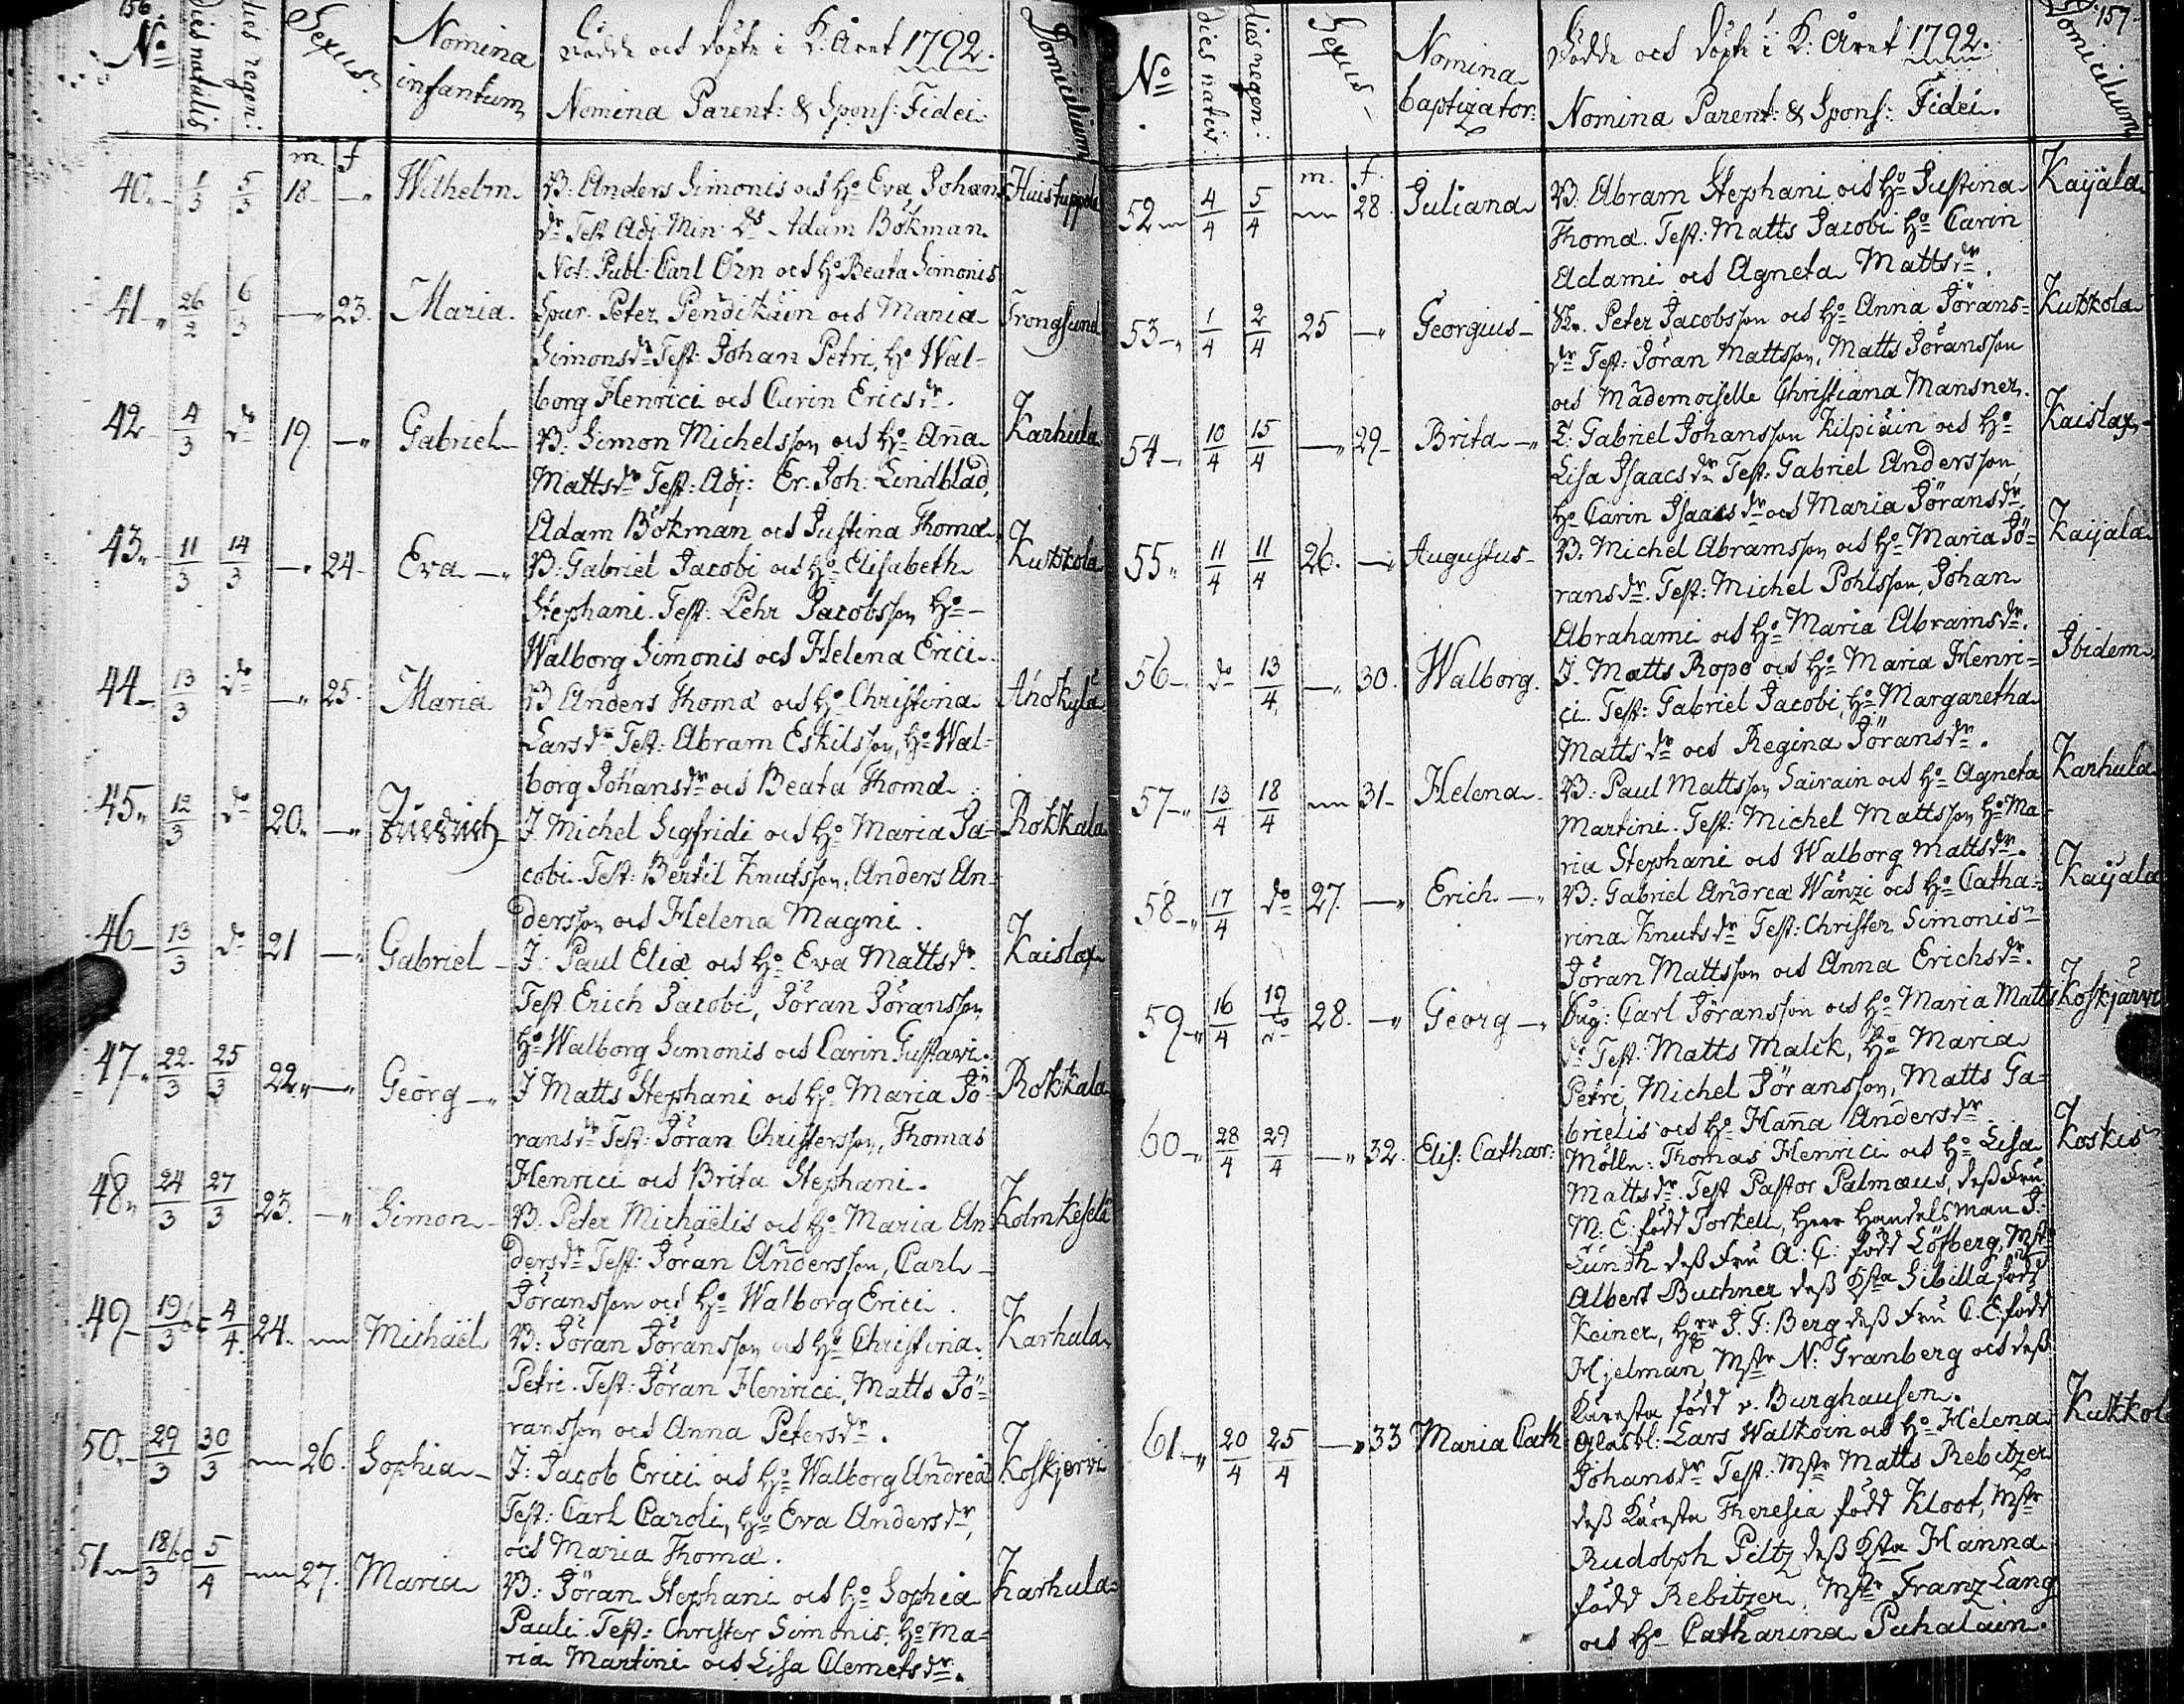 156.
No
Dies natalis
dies regen:
Sexus
Nomina infantum
Födde och döpte i K: Året 1792.
Nomina Parent: & Spons: Fidei.
Domicilium
m. f
40. 1/3 5/3 18 — Wilhelm B: Anders Simonis och Ho Eva Johans Huistuppola
dr Test Adj: Min: Ds Adam Bökman
Not: Publ: Carl Örn och Ho Beata Simonis
41 26/2 6/3 — 23. Maria. Spur. Peter Pendikäin och Maria Trongsund
Simonsdr Test: Johan Petri, Ho Wal-
borg Henrici och Carin Ericsdr.
42 4/3 do 19. — Gabriel B: Simon Michelsson och Ho Anna Karhula
Mattsdr Test: Adj: Er. Joh: Lindblad,
Adam Bökman och Justina Thomæ.
43. 11/3 14/3 — 24. Eva B: Gabriel Jacobi och Ho Elisabeth Kukkola
Stephani. Test: Pehr Jacobsson Ho
Walborg Simonis och Helena Erici.
44 13/3 do — 25. Maria B Anders Thomæ och Ho Christina Ahokylä
Larsdr Test: Abram Eskilsson, Ho Wal-
borg Johansdr och Beata Thomæ.
45. 12/3 do 20. — Friedrich I Michel Sigfridi och Ho Maria Ja- Rokkala
cobi. Test: Bertil Knutsson, Anders An-
dersson och Helena Magni.
46 13/3 do 21 — Gabriel I: Paul Eliæ och Ho Eva Mattsdr. Kaislax
Test Erich Jacobi, Jöran Jöransson
Ho Walborg Simonis och Carin Gustavi.
47 22/3 25/3 22. — Georg I Matts Stephani och Ho Maria Jö- Rokkala
ransdr Test: Jöran Christersson, Thomas
Henrici och Brita Stephani.
48. 24/3 27/3 23. — Simon B: Peter Michaëlis och Ho Maria An- Kolmkeselä
dersdr Test: Jöran Andersson, Carl
Jöransson och Ho Walborg Erici.
49 19/3 4/4 24. Michaël B: Jöran Jöransson och Ho Christina Karhula
Petri. Test: Jöran Henrici, Matts Jö-
ransson och Anna Petersdr.
50. 29/3 30/3 26. Sophia I: Jacob Erici och Ho Walborg Andreæ Koskjervi
Test: Carl Caroli, Ho Eva Andersdr,
och Maria Thomæ.
51 18/3 5/4 27. Maria B: Jöran Stephani och Ho Sophia Karhula
Pauli. Test: Christer Simonis, Ho Ma-
ria Martini och Lisa Clemetsdr.
157.
No
dies nativ.
dies regen:
Sexus
Nomina baptizator:
Födde och döpte i K: Året 1792.
Nomina Parent: & Spons: Fidei.
Domicilium
m. f.
52 4/4 5/4 28. Juliana B. Abram Stephani och Ho Justina Kaijala
Thomæ. Test: Matts Jacobi Ho Carin
Adami och Agneta Mattsdr.
53 1/4 2/4 25 — Georgius Peter Jacobsson och Ho Anna Jörans- Kukkola
dr Test: Jöran Mattsson, Matts Jöransson
och Mademoiselle Christiana Mansner.
54 10/4 15/4 — 29 Brita Gabriel Johansson Kilpiäin och Ho Kaislax
Lisa Isaacsdr Test: Gabriel Andersson,
Ho Carin Isaacsdr och Maria Jöransdr
55 11/4 11/4 26. — Augustus B. Michel Abramsson och Ho Maria Jö- Kaijala
ransdr. Test: Michel Pohlsson, Johan
Abrahami och Ho Maria Abramsdr.
56 do 13/4 — 30. Walborg. I. Matts Ropo och Ho Maria Henri- Ibidem
ci. Test: Gabriel Jacobi, Ho Margaretha
Mattsdr och Regina Jöransdr.
57 13/4 18/4 31 Helena B: Paul Mattsson Sairain och Ho Agneta Karhula
Martini. Test: Michel Mattsson Ho Ma-
ria Stephani och Walborg Mattsdr.
58 17/4 do 27. — Erich B: Gabriel Andreæ Wänzi och Ho Catha- Kaijala
rina Knutsdr Test: Christer Simonis
Jöran Mattsson och Anna Erichsdr.
59 16/4 19/do 28. — Georg Carl Jöransson och Ho Maria Matts Koskjärvi
dr Test: Matts Malck, Ho Maria
Petri, Michel Jöransson, Matts Ga-
brielis och Ho Hanna Andersdr
60 28/4 29/4 — 32. Elis: Cathar: Mölln: Thomas Henrici och Ho Lisa Koskis
Mattsdr. Test Pastor Palmæus, dess Fru
M: E: född Forkell, Herr Handelsman J:
Lundh dess Fru A: C: född Löfberg, Mstr
Albert Buchner dess Ksta Sibilla född
Keiner, Herr J. F: Berg dess Fru C. E. född
Hjelman, Mstr N: Granberg och dess
Käresta född v. Burghausen.
61 20/4 25/4 — 33 Maria Cath Glasbl: Lars Walkoin och Ho Helena Kukkol
Johansdr Test: Mstr Matts Rebitzer
dess Käresta Theresia född Kloot, Mstr
Rudolph Piltz dess Ksta Hanna
född Rebitzer, Mstr Franz Lang
och Ho Catharina Puhalain.